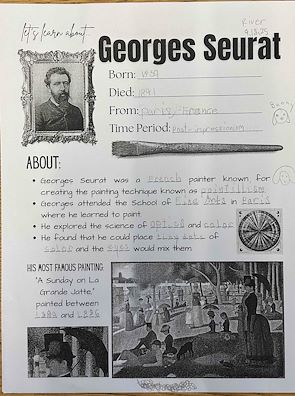 let's learn about...
River
9.18.25
Georges Seurat
Born: 1859
Died: 1891
From: Paris, France
Bunny
Time Period: Post-Impressionism
ABOUT:
• Georges Seurat was a French painter known for
creating the painting technique known as pointillism
• Georges attended the School of Fine Arts in Paris
where he learned to paint.
• He explored the science of optical and color
• He found that he could place tiny dots of
color and the eyes would mix them.
HIS MOST FAMOUS PAINTING:
"A Sunday on La
Grande Jatte,"
painted between
1884 and 1886